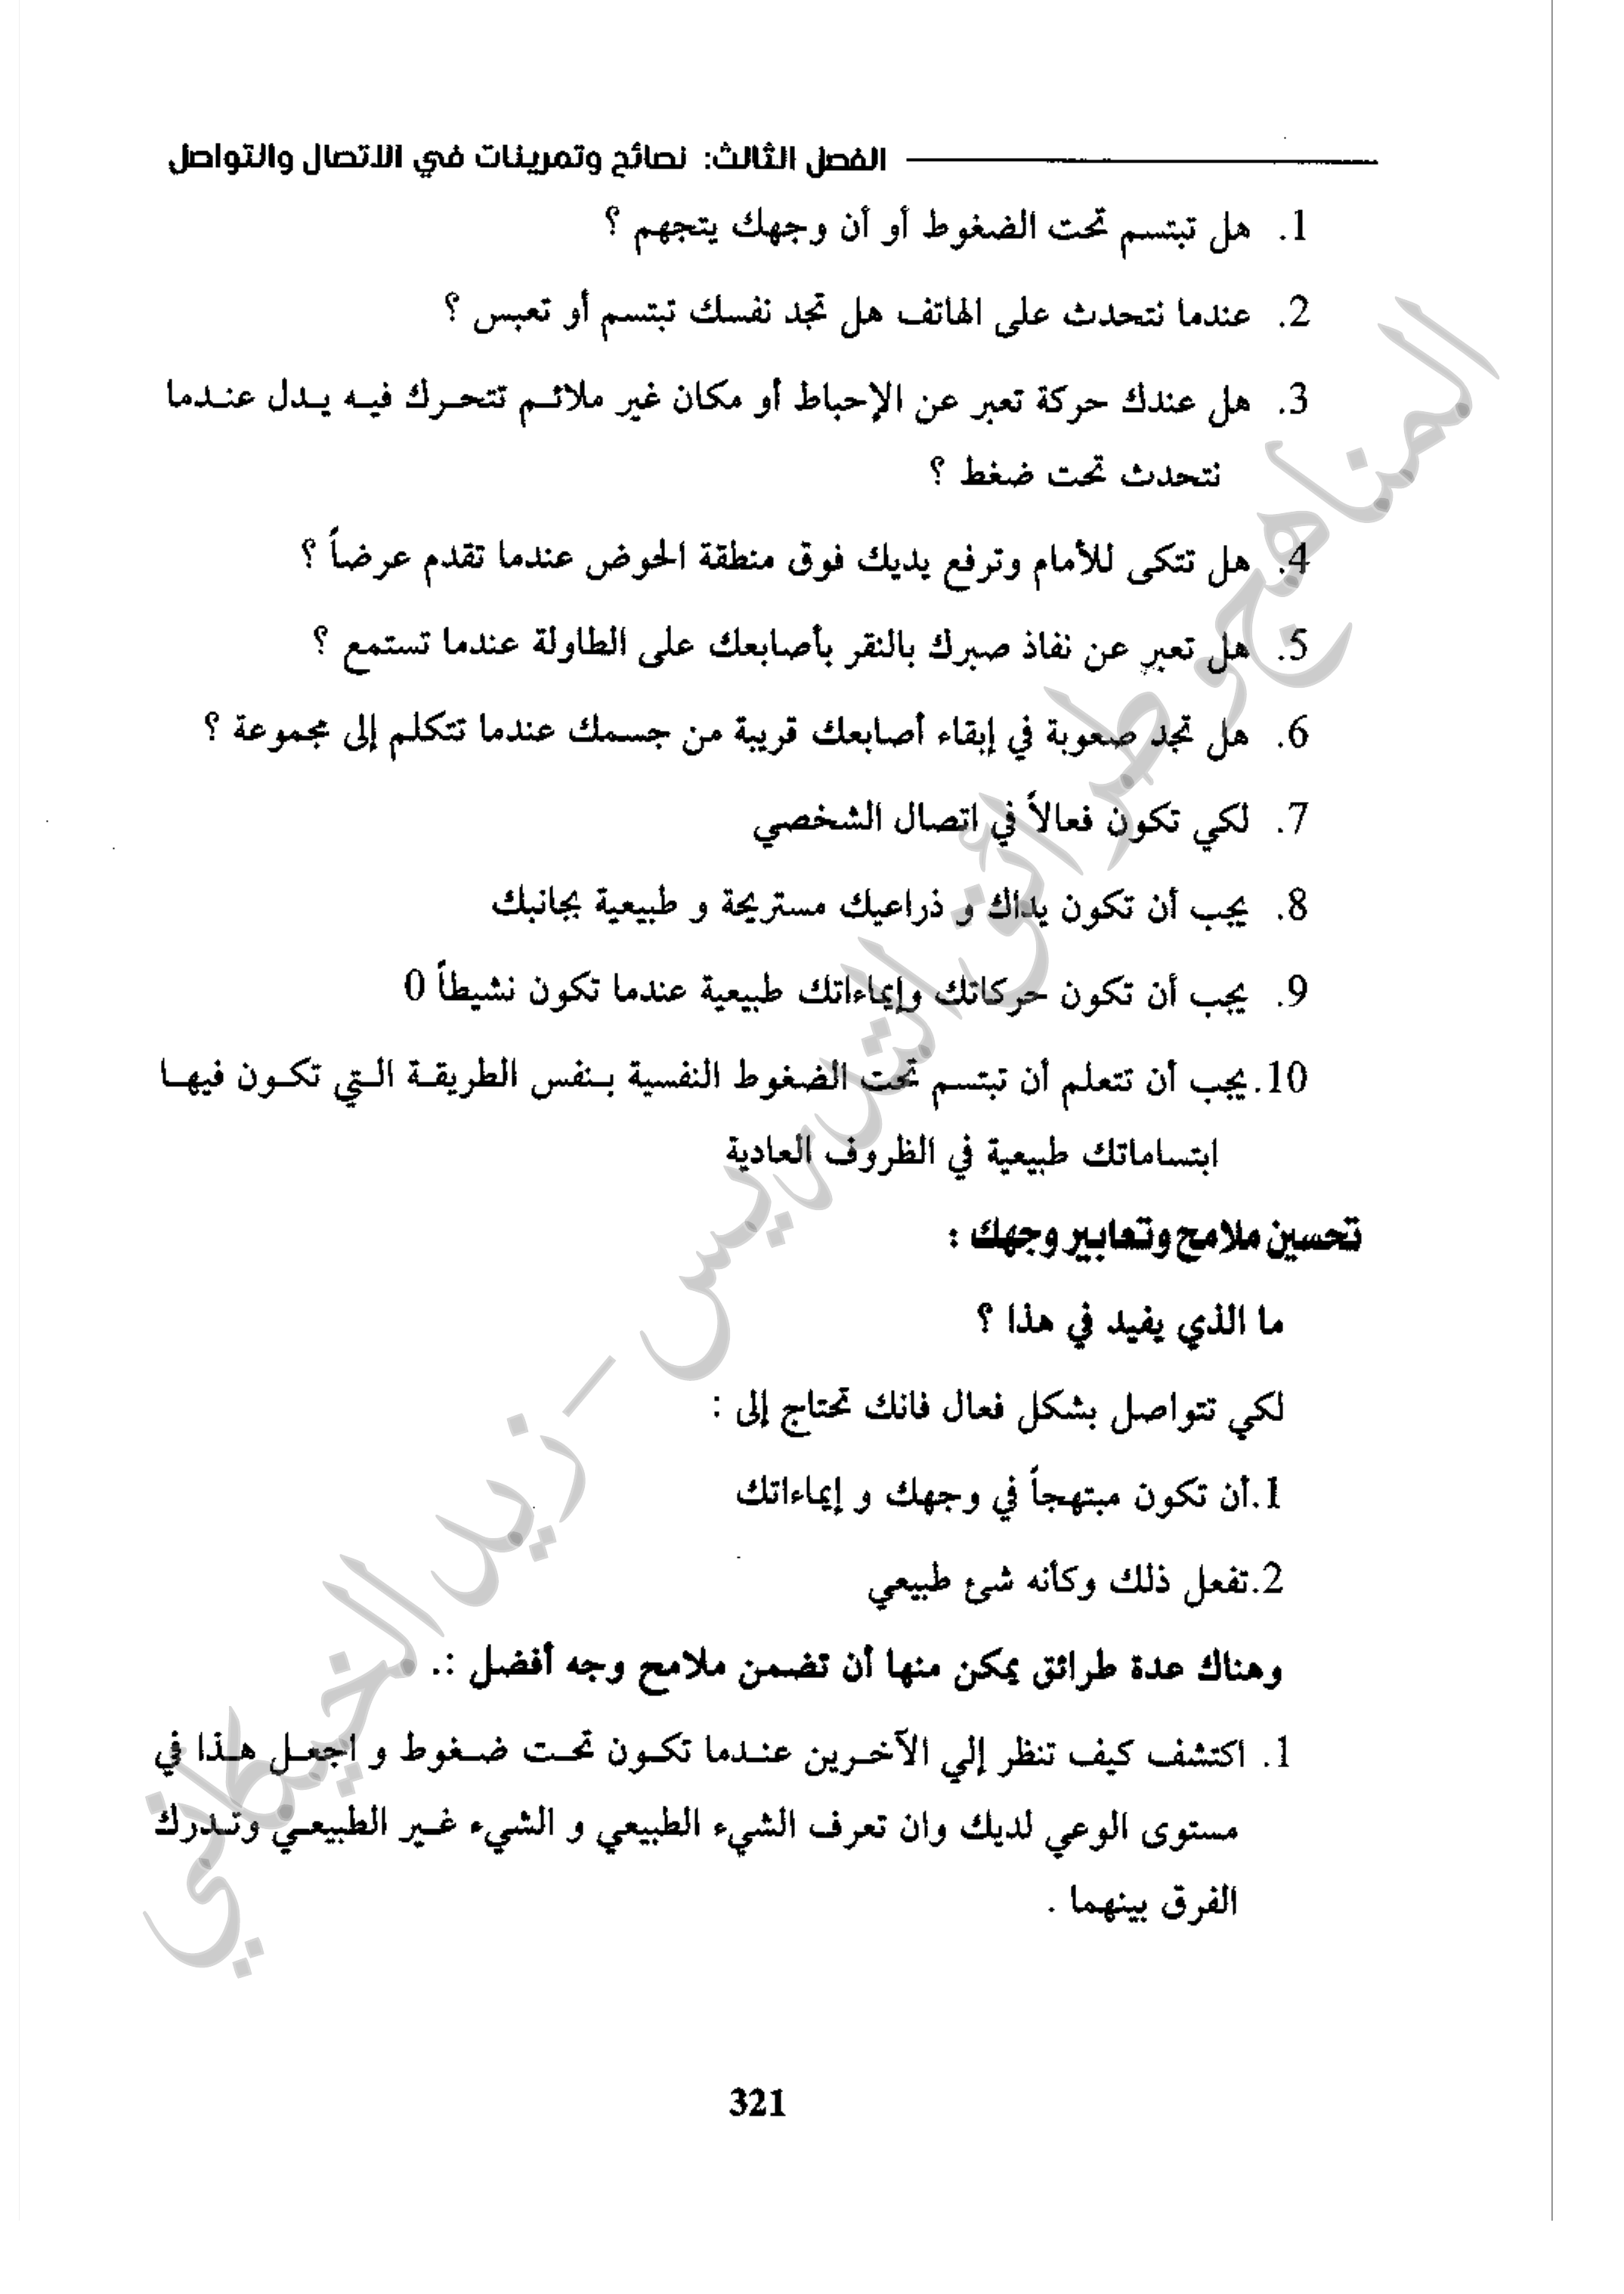 الفصل الثالث: نصائح وتمرينات في الاتصال والتواصل
1. هل تبتسم تحت الضغوط أو أن وجهك يتجهم ؟
2. عندما نتحدث على الهاتف هل تجد نفسك تبتسم أو تعبس ؟
3. هل عندك حركة تعبر عن الإحباط أو مكان غير ملائم تتحرك فيه يدل عندما
نتحدث تحت ضغط ؟
4. هل تتكى للأمام وترفع يديك فوق منطقة الحوض عندما تقدم عرضاً ؟
5. هل تعبر عن نفاذ صبرك بالنقر بأصابعك على الطاولة عندما تستمع ؟
6. هل تجد صعوبة في إبقاء أصابعك قريبة من جسمك عندما تتكلم إلى مجموعة ؟
7. لكي تكون فعالاً في اتصال الشخصي
8. يجب أن تكون يداك و ذراعيك مستريحة و طبيعية بجانبك
9. يجب أن تكون حركاتك وإيماءاتك طبيعية عندما تكون نشيطاً 0
10. يجب أن تتعلم أن تبتسم تحت الضغوط النفسية بنفس الطريقة التي تكون فيها
ابتساماتك طبيعية في الظروف العادية
تحسين ملامح وتعابير وجهك :
ما الذي يفيد في هذا ؟
لكي تتواصل بشكل فعال فانك تحتاج إلى :
1.أن تكون مبتهجاً في وجهك و إيماءاتك
2.تفعل ذلك وكأنه شئ طبيعي
وهناك عدة طرائق يمكن منها أن تضمن ملامح وجه أفضل :.
1. اكتشف كيف تنظر إلي الآخرين عندما تكون تحت ضغوط و اجعل هذا في
مستوى الوعي لديك وان تعرف الشيء الطبيعي و الشيء غير الطبيعي وتدرك
الفرق بينهما .
321
المناهج وطرائق التدريس - زيد الخيكاني